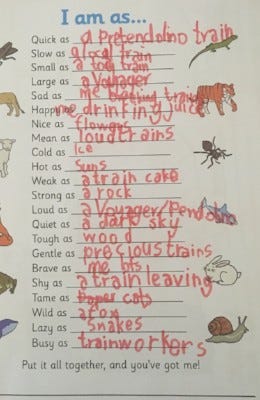 I am as...
Quick as a Pretendolino train
Slow as a local train
Small as a toy train
Large as a Voyager
Sad as me train
Happy as me drinfing juice
Nice as flowers
Mean as loud trains
Cold as Ice
Hot as Suns
Weak as a train cake
Strong as a rock
Loud as a Voyager/Pendolino
Quiet as a dark sky
Tough as wood
Gentle as precious trains
Brave as me
Shy as a train leaving
Tame as cats
Wild as a fox
Lazy as snakes
Busy as trainworkers
Put it all together, and you've got me!